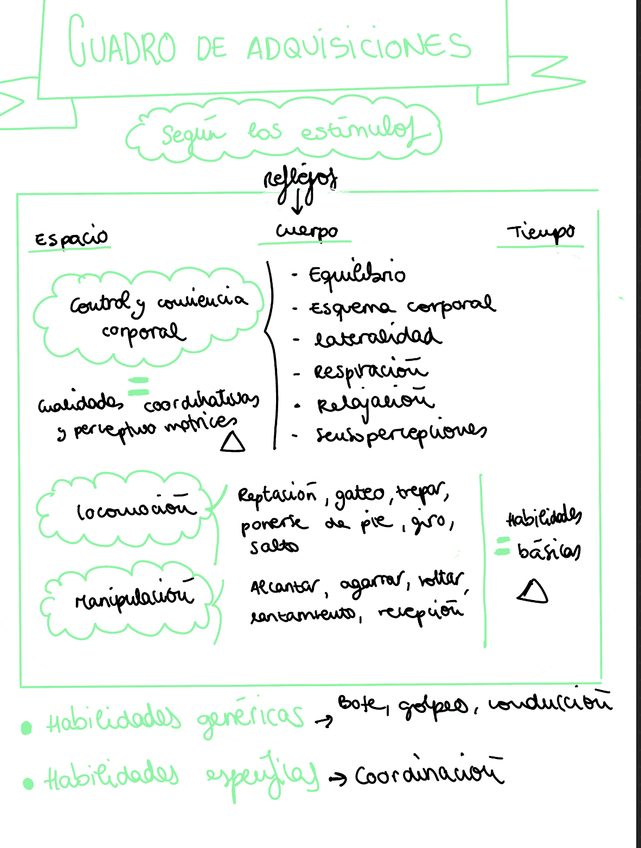 CUADRO DE ADQUISICIONES
Según los estímulos
Reflejos
Espacio
Cuerpo
Tiempo
Control y conciencia
corporal
=
Cualidades coordinativas
y perceptivo motrices
- Equilibrio
- Esquema corporal
- Lateralidad
- Respiración
- Relajación
- Sensopercepciones
Locomoción
Reptación, gateo, trepar,
ponerse de pie, giro,
salto
Manipulación
Alcanzar, agarrar, soltar,
lanzamiento, recepción
Habilidades
= básicas
• Habilidades genéricas → Bote, golpeo, conducción
• Habilidades específicas → Coordinación